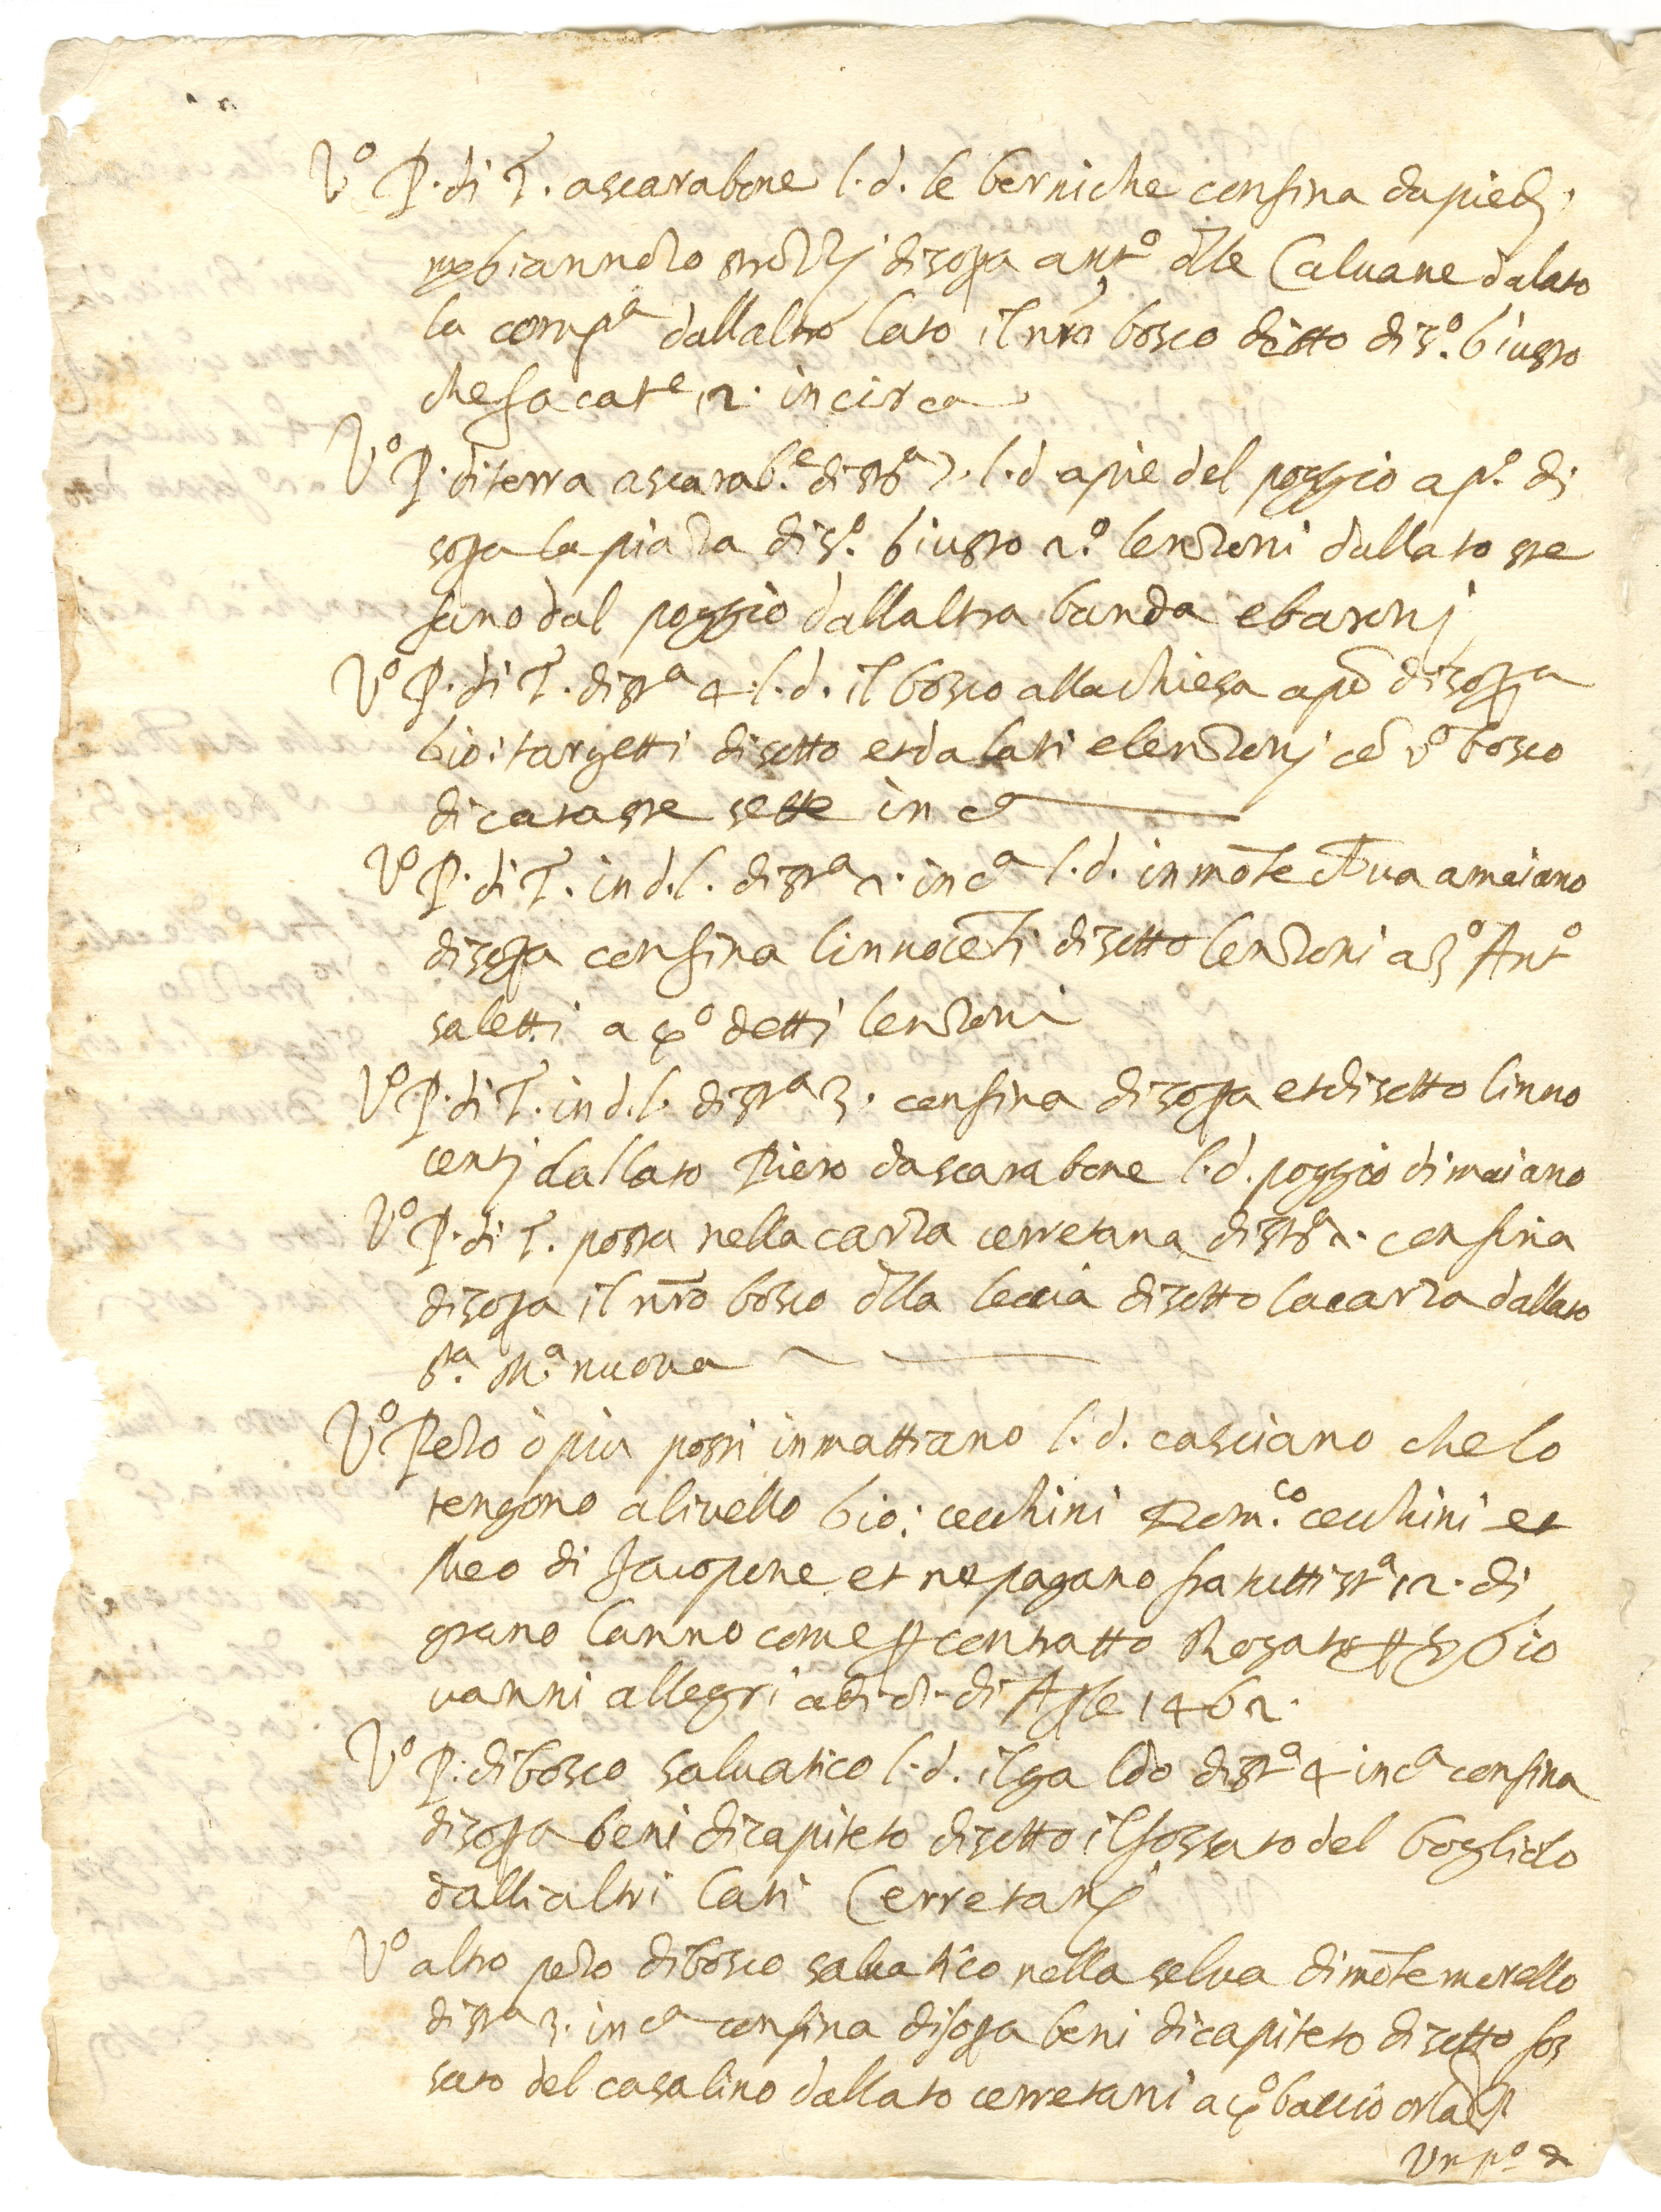 Vº P. di T. a scarabone l. d. le berniche confina da piedi
giannozo strozzj di sopa antº dlle Caluane da lato
la compª dallaltro lato il nrō bosco ditto di sº. giusto
che fa catᵉ 12. in circa
Vº P. di terra a scarabᵉ. di stª 7. l. d a pie del poggio a pº. di
sopa la piaza di sº. giusto 2º. lenzoni dallato ste
fano dal poggio dallaltra banda e baronj
Vº P. di T. di stª 4. l. d. il bosco alla chiesa a pō di sopra
gio: targetti di sotto et da lati e lenzonj cō vº bosco
di cataste sette in cª
Vº P. di T. in d. l. di stª 2. in cª l. d. in mōte a maiano
di sopa confina linnocēti di sotto lenzoni a 3º Antº
saletti a 4º detti lenzoni
Vº P. di T. in d. l. di stª 3. confina di sopa et di sotto linno
centj dallato Piero da scarabone l. d. poggio di maiano
Vº P. di T. posta nella carza cerretana di stª 2. confina
di sopa il nrō bosco dlla leccia di sotto la carza dallato
Sᵗᵃ. Mª. nuova
Vº. Pezo ò piu posti in mattiano l. d. casciano che lo
tengono a livello Gio: cecchini Domᶜᵒ. cecchini et
Meo di Jacopone et ne pagano fra tutti stª 12. di
grano lanno come p contratto Rogato p S Gio
vanni allegri adi di Aple 1462.
Vº P. di bosco saluatico l. d. il galdo di stª 4 in cª confina
di sopa beni di capiteto di sotto il fossato del boglido
dalli altri lati Cerretanj
Vº altro pezo di bosco saluatico nella selua di mōte morello
di stª 3. in cª confina di sopa beni di capiteto di sotto fos
sato del casalino dallato cerretani a 4º baccio
Un pº di